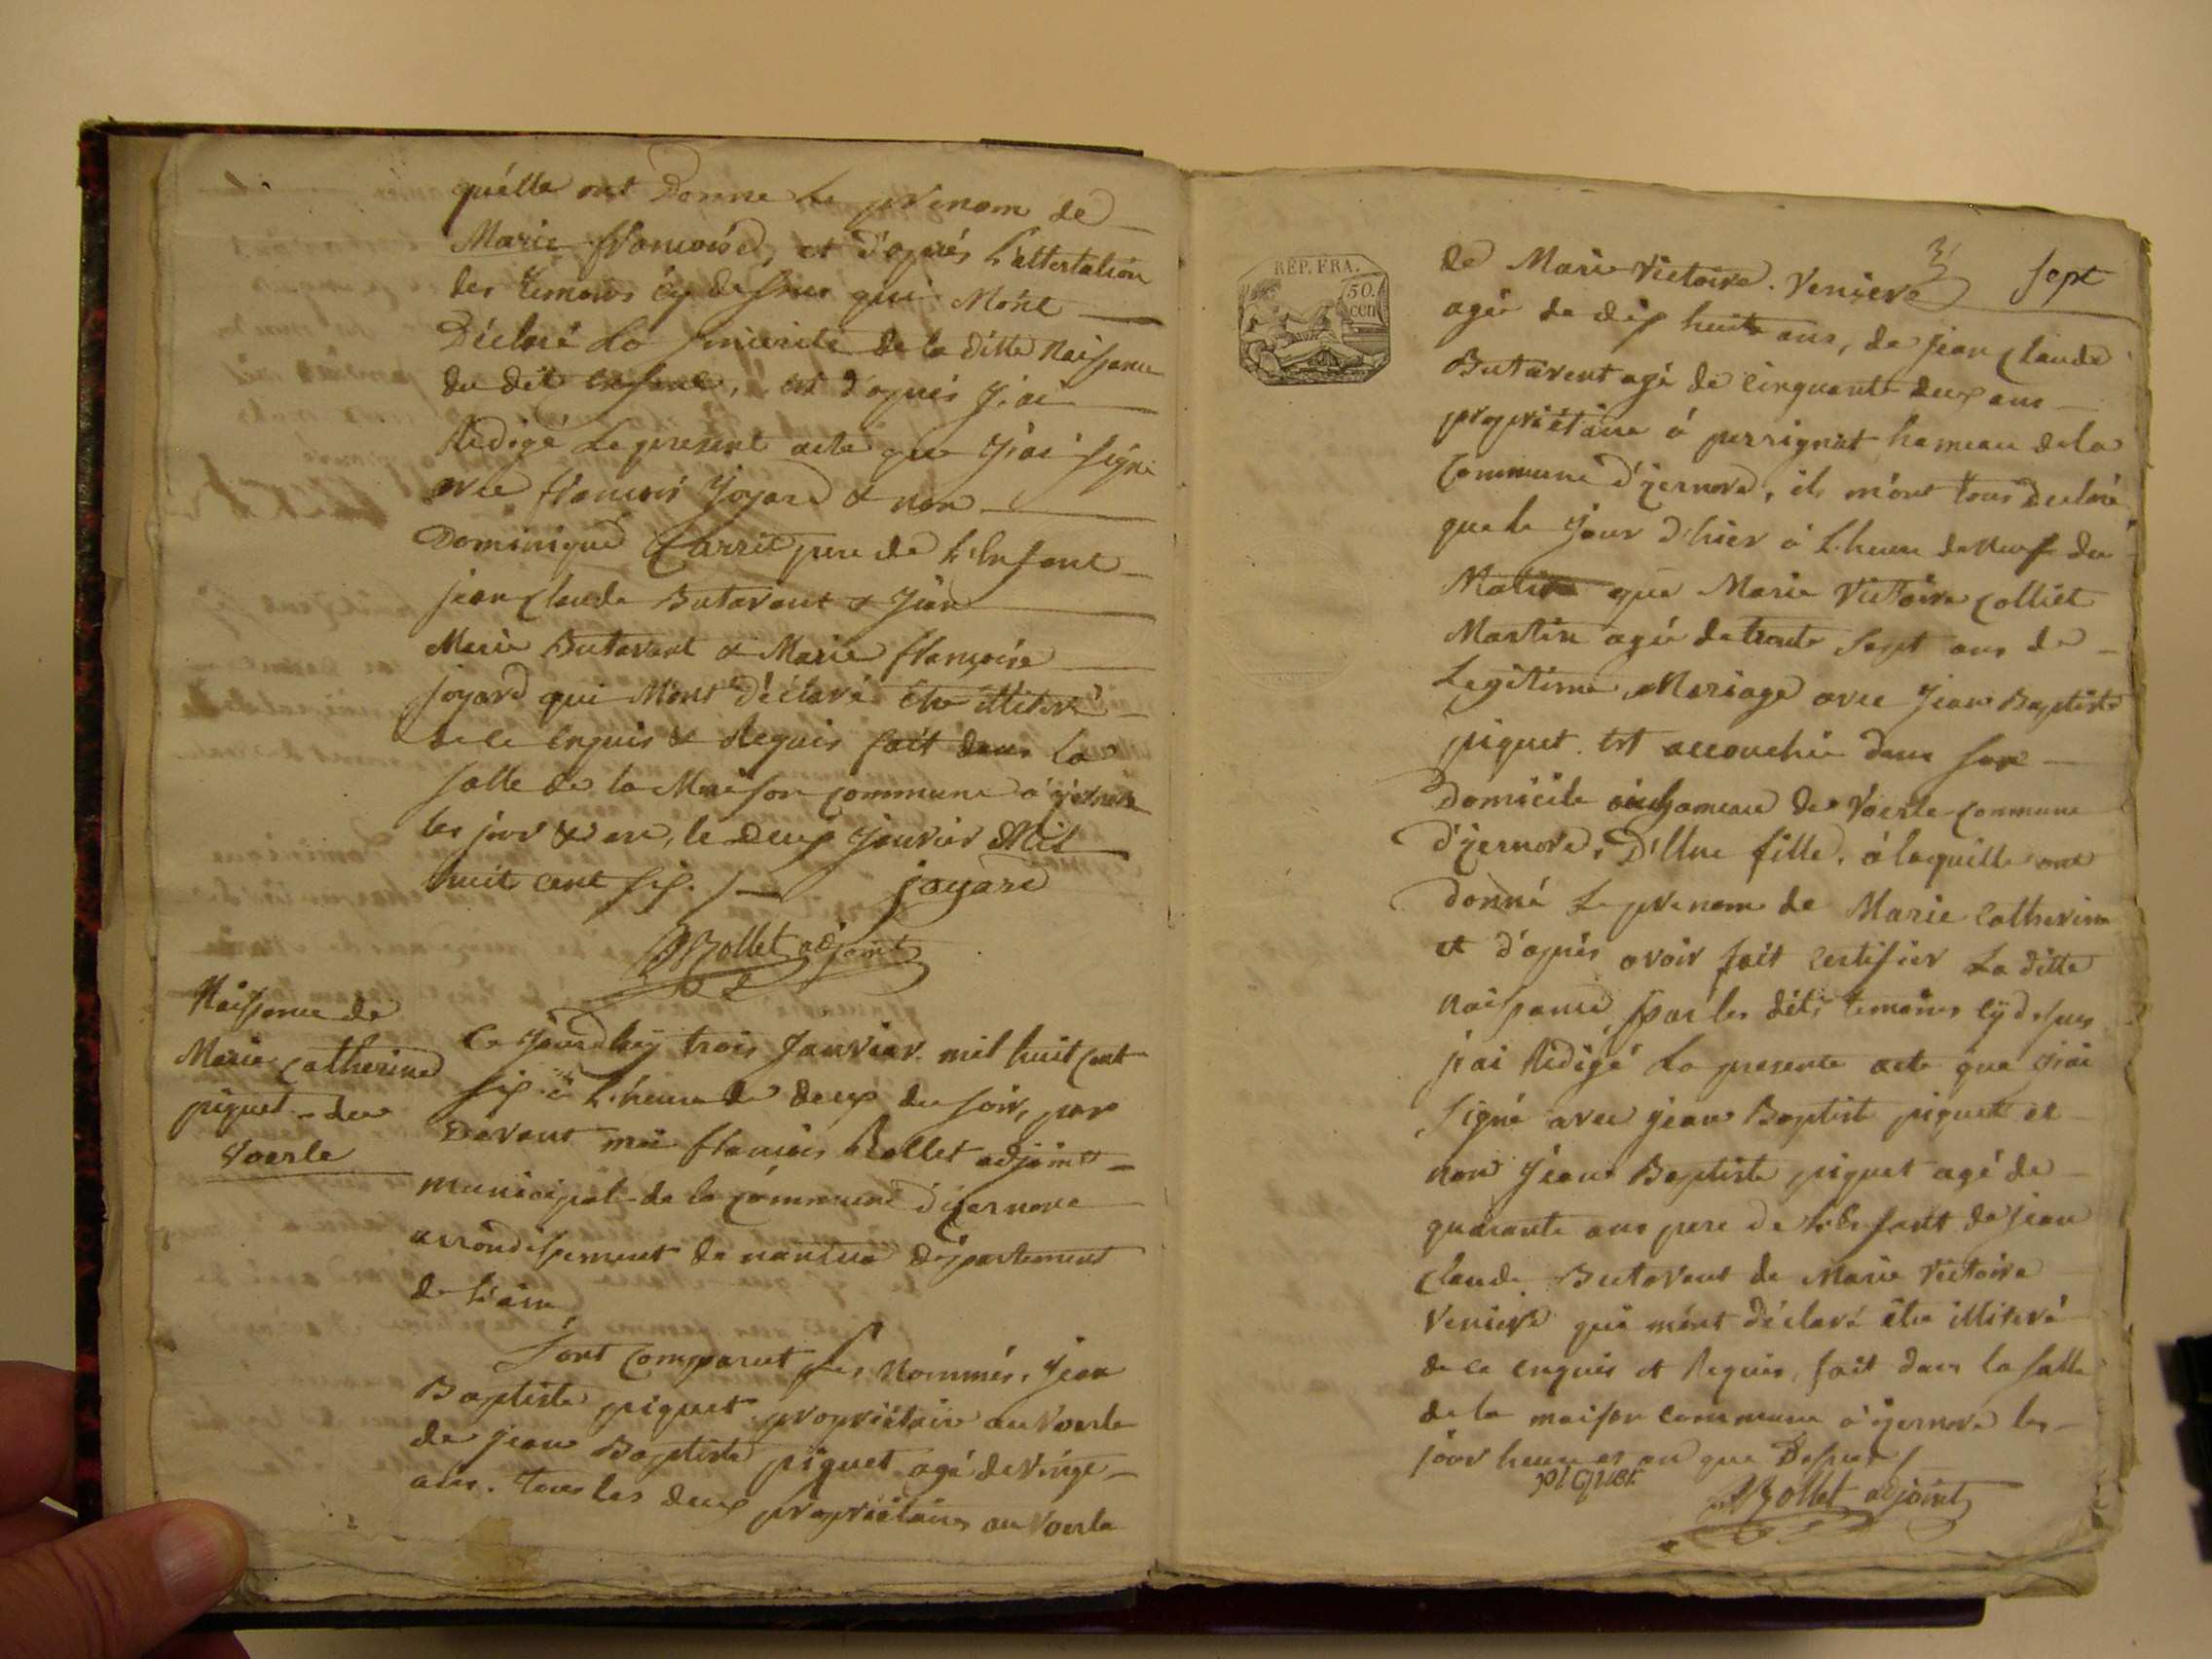 quélle ont Donne Le prénom de
Marie francoise, et d'aprés L'attestation
des temoins cy dessus qui Mont
Déclaré La sincérité de la ditte Naissance
du dit enfant, et d'aprés J'ai
Redigé Le present acte que J'ai signé
avec francois Joyard & non
Dominique Carrie pere de L'Enfant
jean Claude Butavant & Jean
Marie Butavant & Marie françoise
Joyard qui Mont Déclaré être illiteré
de ce enquis & Requis fait dans La
salle de la Maison commune a yzernore
les jour & an, le deux Janvier Mil
huit cent six. /. joyard
Rollet adjoint
Naissance de
Marie Catherine
piquet du
Voerle
Ce Jourdhuy trois Janvier mil huit cent
six à L'heure de deux du soir, par
Devant moi francois Rollet adjoint
municipal de la commune d'izernore
arrondissement de nantua departement
de L'ain
Sont Comparut Les Nommés, Jean
Baptiste piquet propriétaire au Voerle
de jean Baptiste piquet agé de vingt
ans. tous les deux propriétaires au Voerle
REP. FRA.
50.
cen
sept
de Marie Victoire Veniere
agée de dix huite ans, de jean Claude
Butavent agé de cinquante deux ans
propriétaire á perrignat hameau de la
Commune d'yzernore, ils m'ont tous declaré
que le Jour d'hier á L'heure de neuf du
Matin que Marie Victoire Colliet
Martin agée de trente sept ans de
Legitime Mariage avec Jean Baptiste
piquet est accouchée dans son
Domicile au hameau de Voerle commune
d'yzernore, D'Une fille, á laquelle ont
donné Le prenom de Marie Catherine
et d'aprés avoir fait certifier La ditte
naissance par les dits temoins cy dessus
j'ai Redigé La presente acte que j'ai
Signé avec jean Baptist piquet et
non Jean Baptiste piquet agé de
quarante ans pere de L'Enfant de jean
Claude Butavant de Marie Victoire
Veniere qui m'ont déclaré être illiteré
de ce enquis et Requis, fait dans la salle
de la maison commune a yzernore les
jour heure et an que Dessus /
piquet
Rollet adjoint